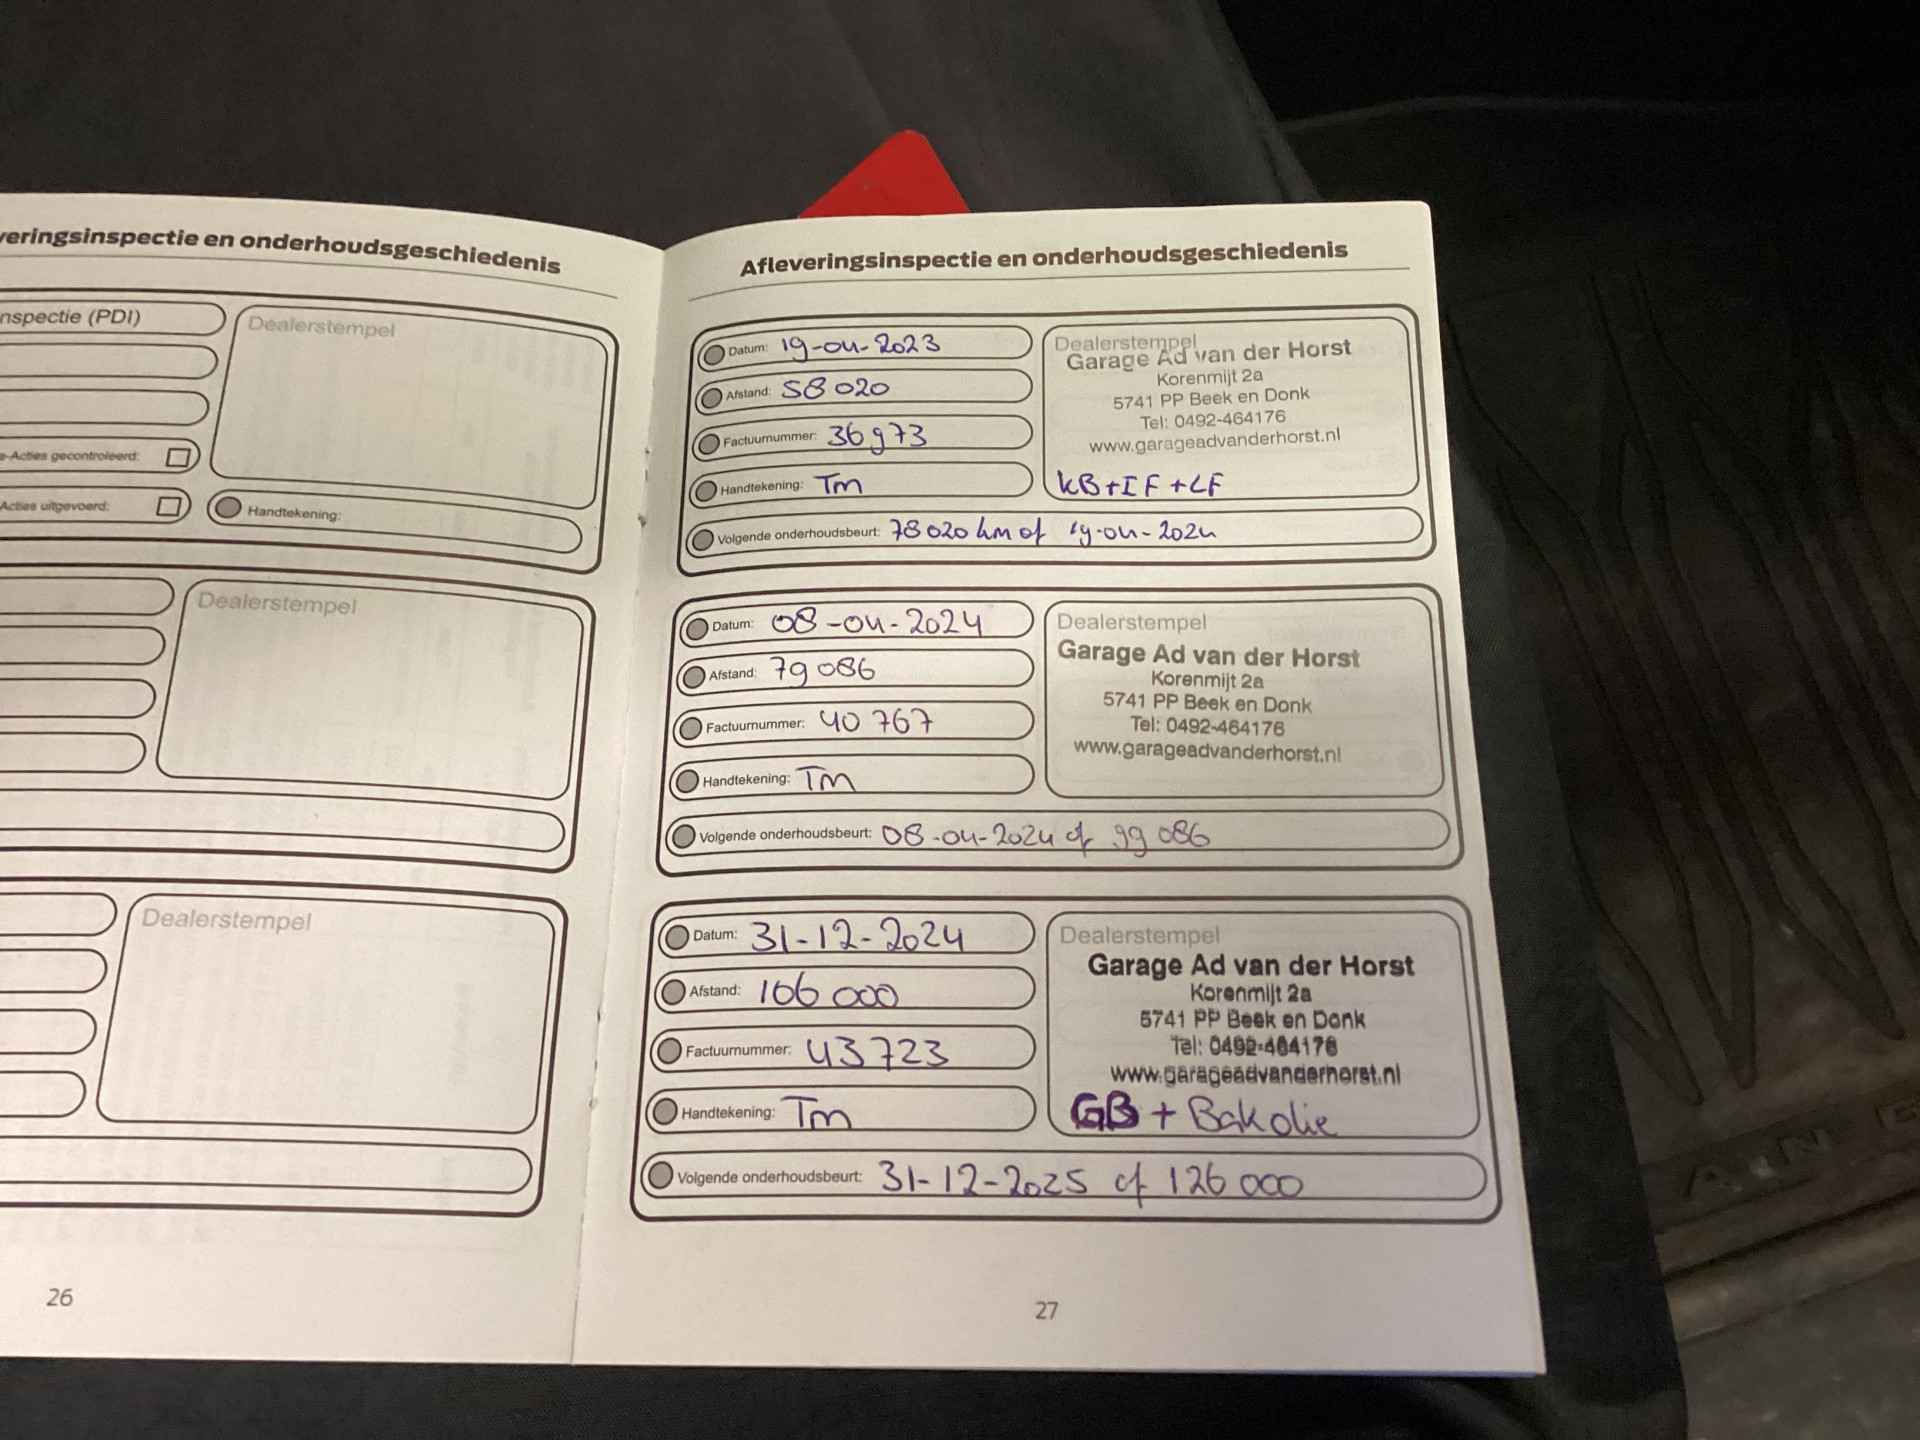 veringsinspectie en onderhoudsgeschiedenis
nspectie (PDI)
Dealerstempel
e-Acties gecontroleerd:
Acties uitgevoerd:
Handtekening:
Dealerstempel
Dealerstempel
26
Afleveringsinspectie en onderhoudsgeschiedenis
Datum: 19-04-2023
Afstand: 58 020
Factuurnummer: 36973
Handtekening: Tm
Dealerstempel
Garage Ad van der Horst
Korenmijt 2a
5741 PP Beek en Donk
Tel: 0492-464176
www.garageadvanderhorst.nl
KB+IF+LF
Volgende onderhoudsbeurt: 78020 km of 19-04-2024
Datum: 08-04-2024
Afstand: 79086
Factuurnummer: 40767
Handtekening: Tm
Dealerstempel
Garage Ad van der Horst
Korenmijt 2a
5741 PP Beek en Donk
Tel: 0492-464176
www.garageadvanderhorst.nl
Volgende onderhoudsbeurt: 08-04-2024 of 99086
Datum: 31-12-2024
Afstand: 106 000
Factuurnummer: 43723
Handtekening: Tm
Dealerstempel
Garage Ad van der Horst
Korenmijt 2a
5741 PP Beek en Donk
Tel: 0492-464176
www.garageadvanderhorst.nl
GB + Bakolie
Volgende onderhoudsbeurt: 31-12-2025 of 126 000
27